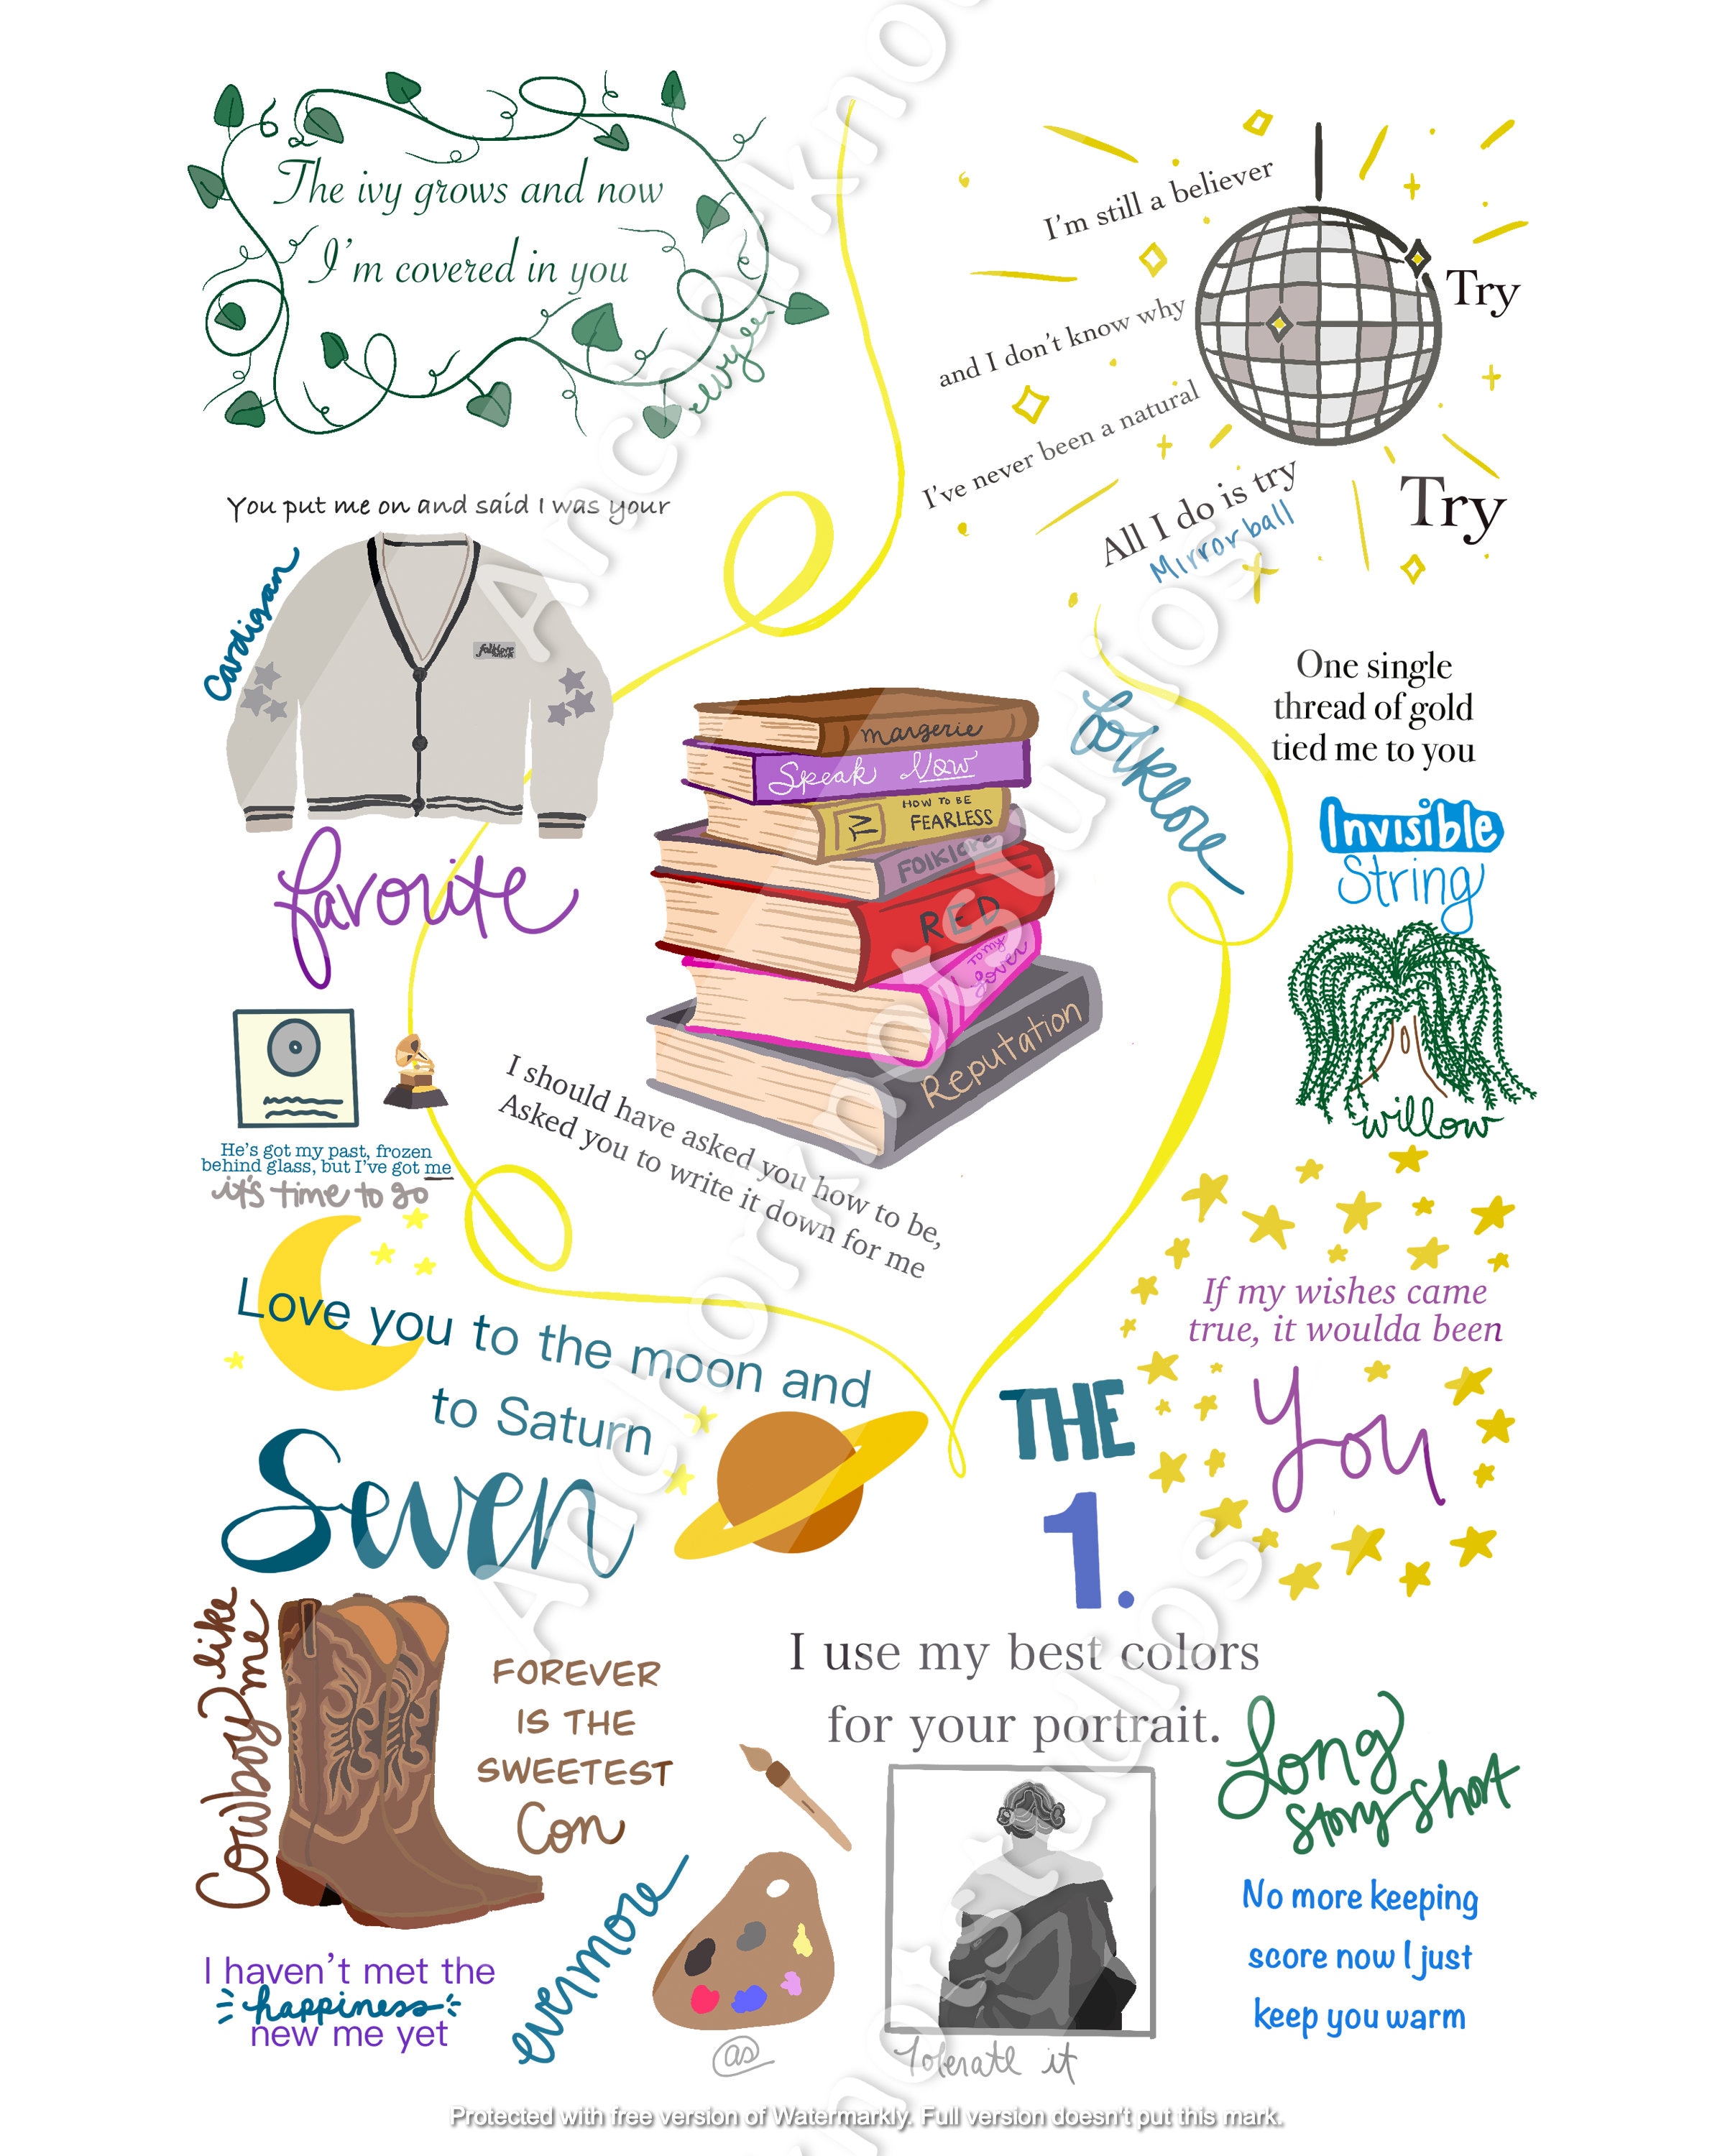 The ivy grows and now
I'm covered in you
I'm still a believer
Try
and I don't know why
I've never been a natural
All I do is try
Try
Mirrorball
You put me on and said I was your
Cardigan
folklore
favorite
margerie
Speak Now
HOW TO BE
FEARLESS
TV
FOlKlore
RED
Lover
Reputation
folklore
One single
thread of gold
tied me to you
Invisible
String
willow
He's got my past, frozen
behind glass, but I've got me
it's time to go
I should have asked you how to be,
Asked you to write it down for me
Love you to the moon and
to Saturn
Seven
If my wishes came
true, it woulda been
You
THE
1.
Cowboy like
me
FOREVER
IS THE
SWEETEST
Con
I use my best colors
for your portrait.
Long
story short
No more keeping
score now I just
keep you warm
I haven't met the
happiness
new me yet
evermore
as
tolerate it
Anchorknotstudios
Protected with free version of Watermarkly. Full version doesn't put this mark.